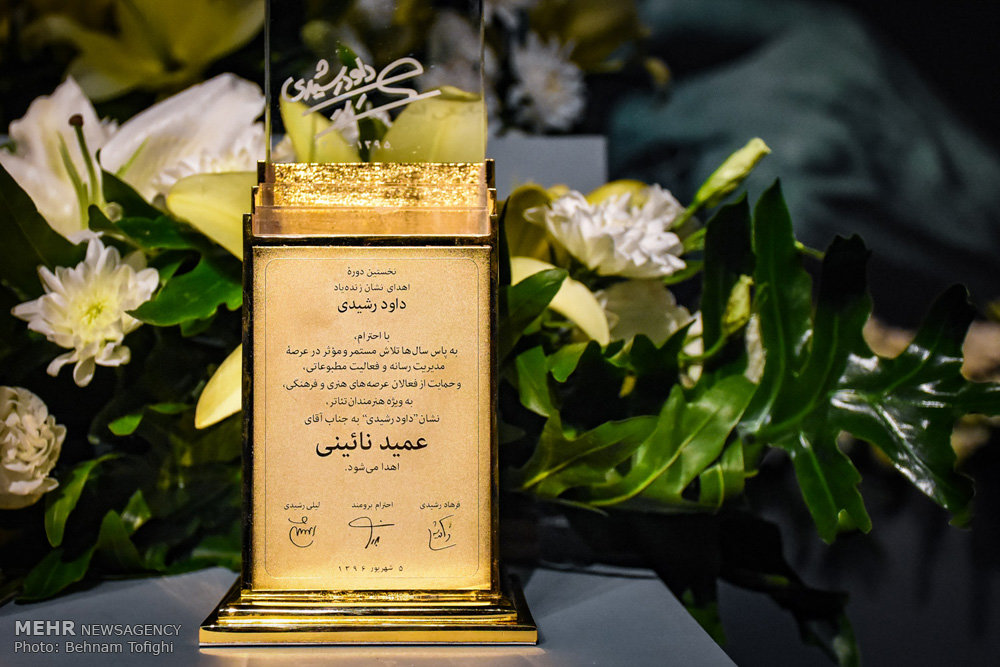 داود رشیدی
۱۳۹۵
نخستین دورهٔ
اهدای نشان زنده‌یاد
داود رشیدی
با احترام،
به پاس سال‌ها تلاش مستمر و مؤثر در عرصهٔ
مدیریت رسانه و فعالیت مطبوعاتی،
و حمایت از فعالان عرصه‌های هنری و فرهنگی،
به ویژه هنرمندان تئاتر،
نشان "داود رشیدی" به جناب آقای
عمید نائینی
اهدا می‌شود.
فرهاد رشیدی احترام برومند لیلی رشیدی
۵ شهریور ۱۳۹۶
MEHR NEWSAGENCY
Photo: Behnam Tofighi